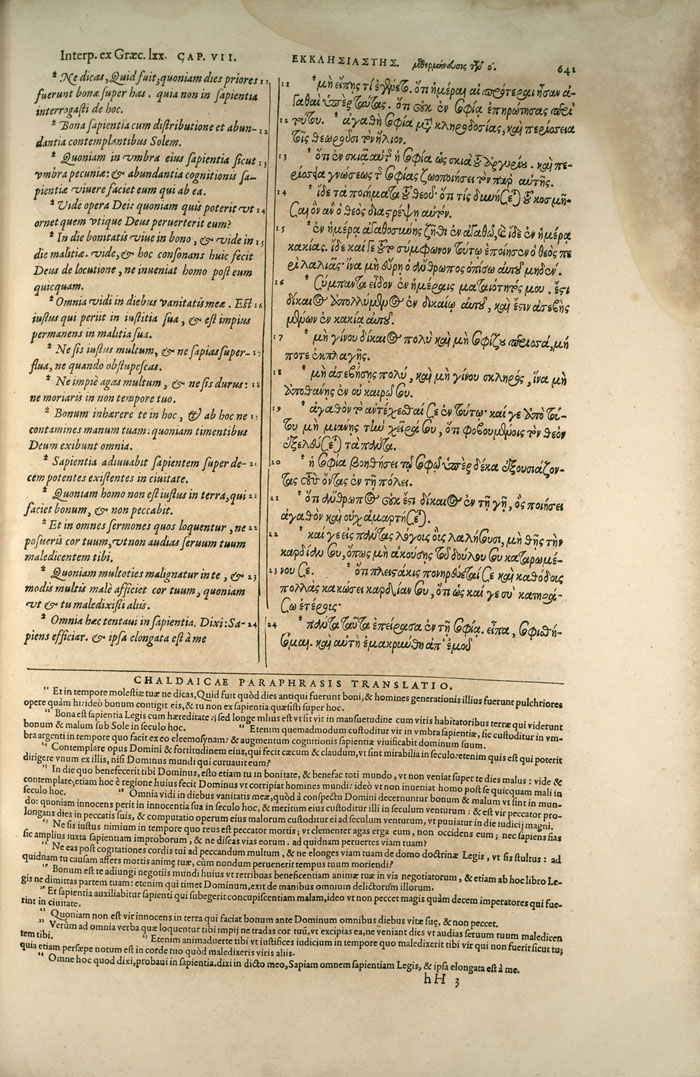 Interp. ex Græc. lxx. CAP. VII.
ΕΚΚΛΗΣΙΑΣΤΗΣ. μεθερμήνευσις τῶν ο΄.
641
* Ne dicas, Quid fuit, quoniam dies priores 11
fuerunt bonæ super has. quia non in sapientia
interrogasti de hoc.
* Bona sapientia cum distributione et abun- 12
dantia contemplantibus Solem.
* Quoniam in vmbra eius sapientia sicut 13
vmbra pecuniæ: & abundantia cognitionis sa-
pientiæ viuere faciet eum qui ab ea.
* Vide opera Dei: quoniam quis poterit vt 14
ornet quem vtique Deus peruerterit eum?
* In die bonitatis viue in bono, & vide in 15
die malitiæ. vide, & hoc consonans huic fecit
Deus de locutione, ne inueniat homo post eum
quicquam.
* Omnia vidi in diebus vanitatis meæ. Est 16
iustus qui periit in iustitia sua, & est impius
permanens in malitia sua.
* Ne sis iustus multum, & ne sapias super- 17
flua, ne quando obstupescas.
* Ne impiè agas multum, & ne sis durus: 18
ne moriaris in non tempore tuo.
* Bonum inhærere te in hoc, & ab hoc ne 19
contamines manum tuam: quoniam timentibus
Deum exibunt omnia.
* Sapientia adiuuabit sapientem super de- 21
cem potentes existentes in ciuitate.
* Quoniam homo non est iustus in terra, qui 21
faciet bonum, & non peccabit.
* Et in omnes sermones quos loquentur, ne 22
posueris cor tuum, vt non audias seruum tuum
maledicentem tibi.
* Quoniam multoties malignatur in te, & 23
modis multis malè afficiet cor tuum, quoniam
vt & tu maledixisti aliis.
* Omnia hæc tentaui in sapientia. Dixi: Sa- 24
piens efficiar. & ipsa elongata est à me
11 * μὴ εἴπῃς τί ἐγένετο. ὅτι ἡμέραι αἱ πρότεραι ἦσαν ἀ-
γαθαὶ ὑπὲρ ταύτας. ὅτι οὐκ ἐν σοφίᾳ ἐπηρώτησας περὶ
12 τούτου. * ἀγαθὴ σοφία μετὰ κληροδοσίας, καὶ περισσεία
τοῖς θεωροῦσι τὸν ἥλιον.
13 * ὅτι ἐν σκιᾷ αὐτῆς ἡ σοφία ὡς σκιὰ τοῦ ἀργυρίου. καὶ πε-
ρισσεία γνώσεως τῆς σοφίας ζωοποιήσει τὸν παρ' αὐτῆς.
14 * ἴδε τὰ ποιήματα τοῦ θεοῦ· ὅτι τίς δυνήσεται τοῦ κοσμῆ-
σαι ὃν ἂν ὁ θεὸς διαστρέψῃ αὐτόν.
15 * ἐν ἡμέρᾳ ἀγαθοσύνης ζῆθι ἐν ἀγαθῷ, καὶ ἴδε ἐν ἡμέρᾳ
κακίας. ἴδε καί γε σὺν τούτῳ σύμφωνον τοῦτο ἐποίησεν ὁ θεὸς πε-
ρὶ λαλιᾶς· ἵνα μὴ εὕρῃ ὁ ἄνθρωπος ὀπίσω αὐτοῦ μηδέν.
16 * Σύμπαντα εἶδον ἐν ἡμέραις ματαιότητός μου. ἔστι
δίκαιος ἀπολλύμενος ἐν δικαίῳ αὐτοῦ, καὶ ἔστιν ἀσεβὴς
μένων ἐν κακίᾳ αὐτοῦ.
17 * μὴ γίνου δίκαιος πολὺ καὶ μὴ σοφίζου περισσά, μή
ποτε ἐκπλαγῇς.
18 * μὴ ἀσεβήσῃς πολύ, καὶ μὴ γίνου σκληρός, ἵνα μὴ
ἀποθάνῃς ἐν οὐ καιρῷ σου.
19 * ἀγαθὸν τὸ ἀντέχεσθαί σε ἐν τούτῳ· καί γε ἀπὸ τού-
του μὴ μιάνῃς τὴν χεῖρά σου, ὅτι φοβουμένοις τὸν θεὸν
ἐξελεύσεται τὰ πάντα.
20 * ἡ σοφία βοηθήσει τῷ σοφῷ ὑπὲρ δέκα ἐξουσιάζον-
τας τοὺς ὄντας ἐν τῇ πόλει.
21 * ὅτι ἄνθρωπος οὐκ ἔστι δίκαιος ἐν τῇ γῇ, ὃς ποιήσει
ἀγαθὸν καὶ οὐχ ἁμαρτήσεται.
22 * καί γε εἰς πάντας λόγους οἷς λαλήσουσι, μὴ θῇς τὴν
καρδίαν σου, ὅπως μὴ ἀκούσῃς τοῦ δούλου σου καταρωμέ-
23 νου σε. * ὅτι πλειστάκις πονηρεύεταί σε καὶ καθόδοις
πολλαῖς κακώσει καρδίαν σου, ὅτι ὡς καί γε σὺ κατηρά-
σω ἑτέροις·
24 * πάντα ταῦτα ἐπείρασα ἐν τῇ σοφίᾳ. εἶπα, σοφισθή-
σομαι. καὶ αὐτὴ ἐμακρύνθη ἀπ' ἐμοῦ
CHALDAICAE PARAPHRASIS TRANSLATIO.
11 Et in tempore molestiæ tuæ ne dicas, Quid fuit quòd dies antiqui fuerunt boni, & homines generationis illius fuerunt pulchriores
opere quàm hi: ideò bonum contigit eis, & tu non ex sapientia quæsisti super hoc.
12 Bona est sapientia Legis cum hæreditate: sed longe melius est vt sit vir in mansuetudine cum viris habitatoribus terræ qui viderunt
bonum & malum sub Sole in seculo hoc. 13 Etenim quemadmodum custoditur vir in vmbra sapientiæ, sic custoditur in vm-
bra argenti in tempore quo facit ex eo eleemosynam: & augmentum cognitionis sapientiæ viuificabit dominum suum.
14 Contemplare opus Domini & fortitudinem eius, qui fecit cæcum & claudum, vt sint mirabilia in seculo: etenim quis est qui poterit
dirigere vnum ex illis, nisi Dominus mundi qui curuauit eum?
15 In die quo benefecerit tibi Dominus, esto etiam tu in bonitate, & benefac toti mundo, vt non veniat super te dies malus: vide &
contemplare, etiam hoc è regione huius fecit Dominus vt corripiat homines mundi: ideò vt non inueniat homo post se quicquam mali in
seculo hoc. 16 Omnia vidi in diebus vanitatis meæ, quòd à conspectu Domini decernuntur bonum & malum vt sint in mun-
do: quoniam innocens perit in innocentia sua in seculo hoc, & meritum eius custoditur illi in seculum venturum: & est vir peccator pro-
longans dies in peccatis suis, & computatio operum eius malorum custoditur ei ad seculum venturum, vt puniatur in die iudicij magni.
17 Ne sis iustus nimium in tempore quo reus est peccator mortis; vt clementer agas erga eum, non occidens eum; nec sapiens sias
sic amplius iuxta sapientiam improborum, & ne discas vias eorum. ad quidnam peruertes viam tuam?
18 Ne eas post cogitationes cordis tui ad peccandum multum, & ne elonges viam tuam de domo doctrinæ Legis, vt sis stultus: ad
quidnam tu causam affers mortis animæ tuæ, cùm nondum peruenerit tempus tuum moriendi?
19 Bonum est te adiungi negotiis mundi huius vt retribus beneficentiam animæ tuæ in via negotiatorum, & etiam ab hoc libro Le-
gis ne dimittas partem tuam: etenim qui timet Dominum, exit de manibus omnium delictorum illorum.
20 Et sapientia auxiliabitur sapienti qui subegerit concupiscentiam malam, ideo vt non peccet magis quàm decem imperatores qui fue-
rint in ciuitate.
21 Quoniam non est vir innocens in terra qui faciat bonum ante Dominum omnibus diebus vitæ suæ, & non peccet.
22 Verum ad omnia verba quæ loquentur tibi impij ne tradas cor tuū, vt excipias ea, ne veniant dies vt audias seruum tuum maledicen
tem tibi. 23 Etenim animaduerte tibi vt iustifices iudicium in tempore quo maledixerit tibi vir qui non fuerit sicut tu;
quia etiam persæpe notum est in corde tuo quòd maledixeris viris aliis.
24 Omne hoc quod dixi, probaui in sapientia. dixi in dicto meo, Sapiam omnem sapientiam Legis, & ipsa elongata est à me.
hH 3